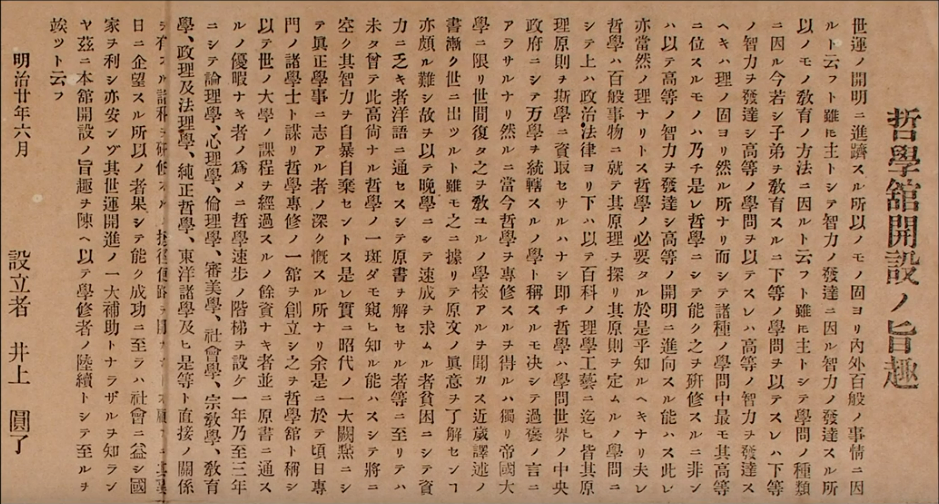 哲學舘開設ノ旨趣
世運ノ開明ニ進躋スル所以ノモノ固ヨリ內外百般ノ事情ニ因
ルト云フト雖𪜈主トシテ智力ノ發達ニ因ル智力ノ發達スル所
以ノモノ敎育ノ方法ニ因ルト云フト雖𪜈主トシテ學問ノ種類
ニ因ル今若シ子弟ヲ敎育スルニ下等ノ學問ヲ以テスレハ下等
ノ智力ヲ發達シ高等ノ學問ヲ以テスレハ高等ノ智力ヲ發達ス
ヘキハ理ノ固ヨリ然ル所ナリ而シテ諸種ノ學問中最モ其高等
ニ位スルモノハ乃チ是レ哲學ニシテ能ク之ヲ研修スルニ非ン
ハ以テ高等ノ智力ヲ發達シ高等ノ開明ニ進向スル能ハス此レ
亦當然ノ理ナリトス哲學ノ必要タル於是乎知ルヘキナリ夫レ
哲學ハ百般事物ニ就テ其原理ヲ探リ其原則ヲ定ムルノ學問ニ
シテ上ハ政治法律ヨリ下ハ以テ百科ノ理學工藝ニ迄ヒ皆其原
理原則ヲ斯學ニ資取セサルハナシ即チ哲學ハ學問世界ノ中央
政府ニシテ万學ヲ統轄スルノ學ト稱スルモ决シテ過褒ノ言ニ
アラサルナリ然ルニ當今哲學ヲ專修スルヲ得ルハ獨リ帝國大
學ニ限リ世間復タ之ヲ敎ユルノ學校アルヲ聞カス近歲譯述ノ
書漸ク世ニ出ツルト雖モ之ニ據リテ原文ノ眞意ヲ了解センヿ
亦頗ル難シ故ヲ以テ晚學ニシテ速成ヲ求ムル者貧困ニシテ資
力ニ乏キ者洋語ニ通セスシテ原書ヲ解セサル者等ニ至リテハ
未タ曾テ此高尙ナル哲學ノ一斑ダモ窺ヒ知ル能ハスシテ將ニ
空ク其智力ヲ自暴自棄セントス是レ實ニ昭代ノ一大闕㸃ニシ
テ眞正學事ニ志アル者ノ深ク慨スル所ナリ余是ニ於テ頃日專
門ノ諸學士ト謀リ哲學專修ノ一舘ヲ創立シ之ヲ哲學舘ト稱シ
以テ世ノ大學ノ課程ヲ經過スルノ餘資ナキ者並ニ原書ニ通ス
ルノ優暇ナキ者ノ爲メニ哲學速步ノ階梯ヲ設ケ一年乃至三年
ニシテ論理學、心理學、倫理學、審美學、社會學、宗敎學、敎育
學、政理及法理學、純正哲學、東洋諸學及ヒ是等ト直接ノ關係
ヲ有スル諸科ヲ研修スル
日ニ企望スル所以ノ者果シテ能ク成功ニ至ラハ社會ニ益シ國
家ヲ利シ亦安ンゾ其世運開進ノ一大補助トナラザルヲ知ラン
ヤ茲ニ本舘開設ノ旨趣ヲ陳ヘ以テ學修者ノ陸續トシテ至ルヲ
竢ツト云フ
明治廿年六月
設立者 井上 圓了